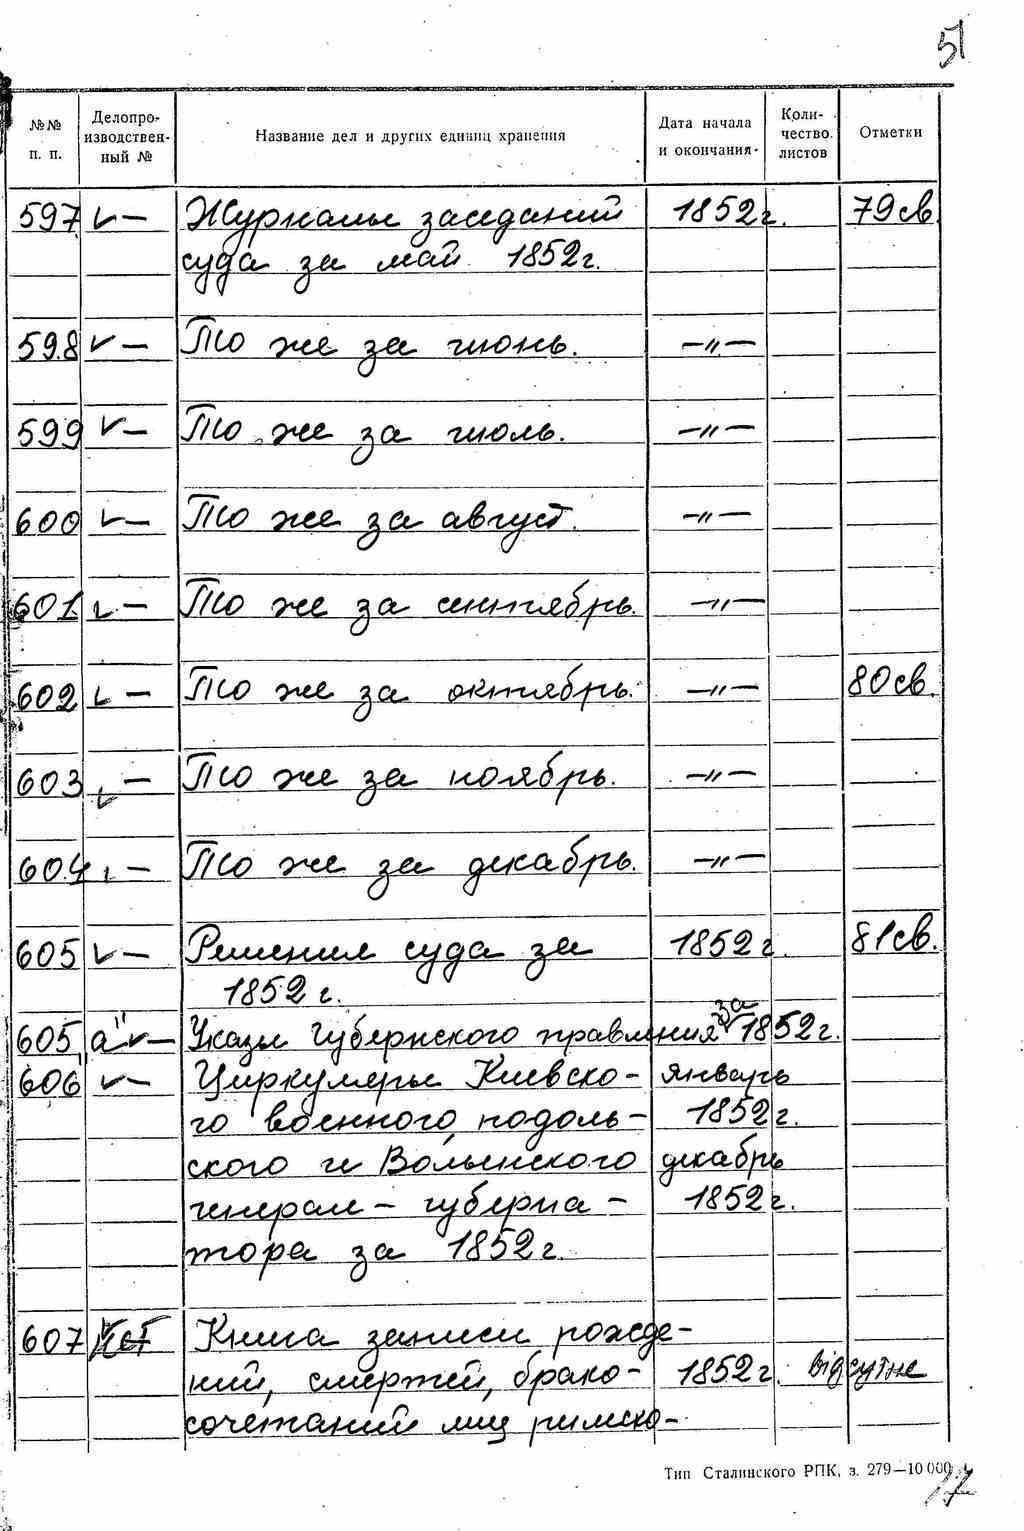 51
№№ п. п. Делопроизводственный № Название дел и других единиц хранения Дата начала и окончания Количество листов Отметки
597 ✓ — Журналы заседаний 1852 г. 79 св.
суда за май 1852 г.
598 ✓ — То же за июнь. —"—
599 ✓ — То же за июль. —"—
600 ✓ — То же за август. —"—
601. ✓ — То же за сентябрь. —"—
602 ✓ — То же за октябрь. —"— 80 св.
603 ✓ — То же за ноябрь. —"—
604 — То же за декабрь. —"—
605 ✓ — Решения суда за 1852 г. 81 св.
1852 г.
605 "а" ✓ — Указы Губернского правления за 1852 г.
606 ✓ — Циркуляры Киевско- январь
го военного, подоль- 1852 г.
ского и Волынского декабрь
генерал-губерна- 1852 г.
тора за 1852 г.
607 нет Книга записи рожде-
ний, смертей, брако- 1852 г. відсутне
сочетаний лиц римско-
Тип Сталинского РПК, з. 279—10 000